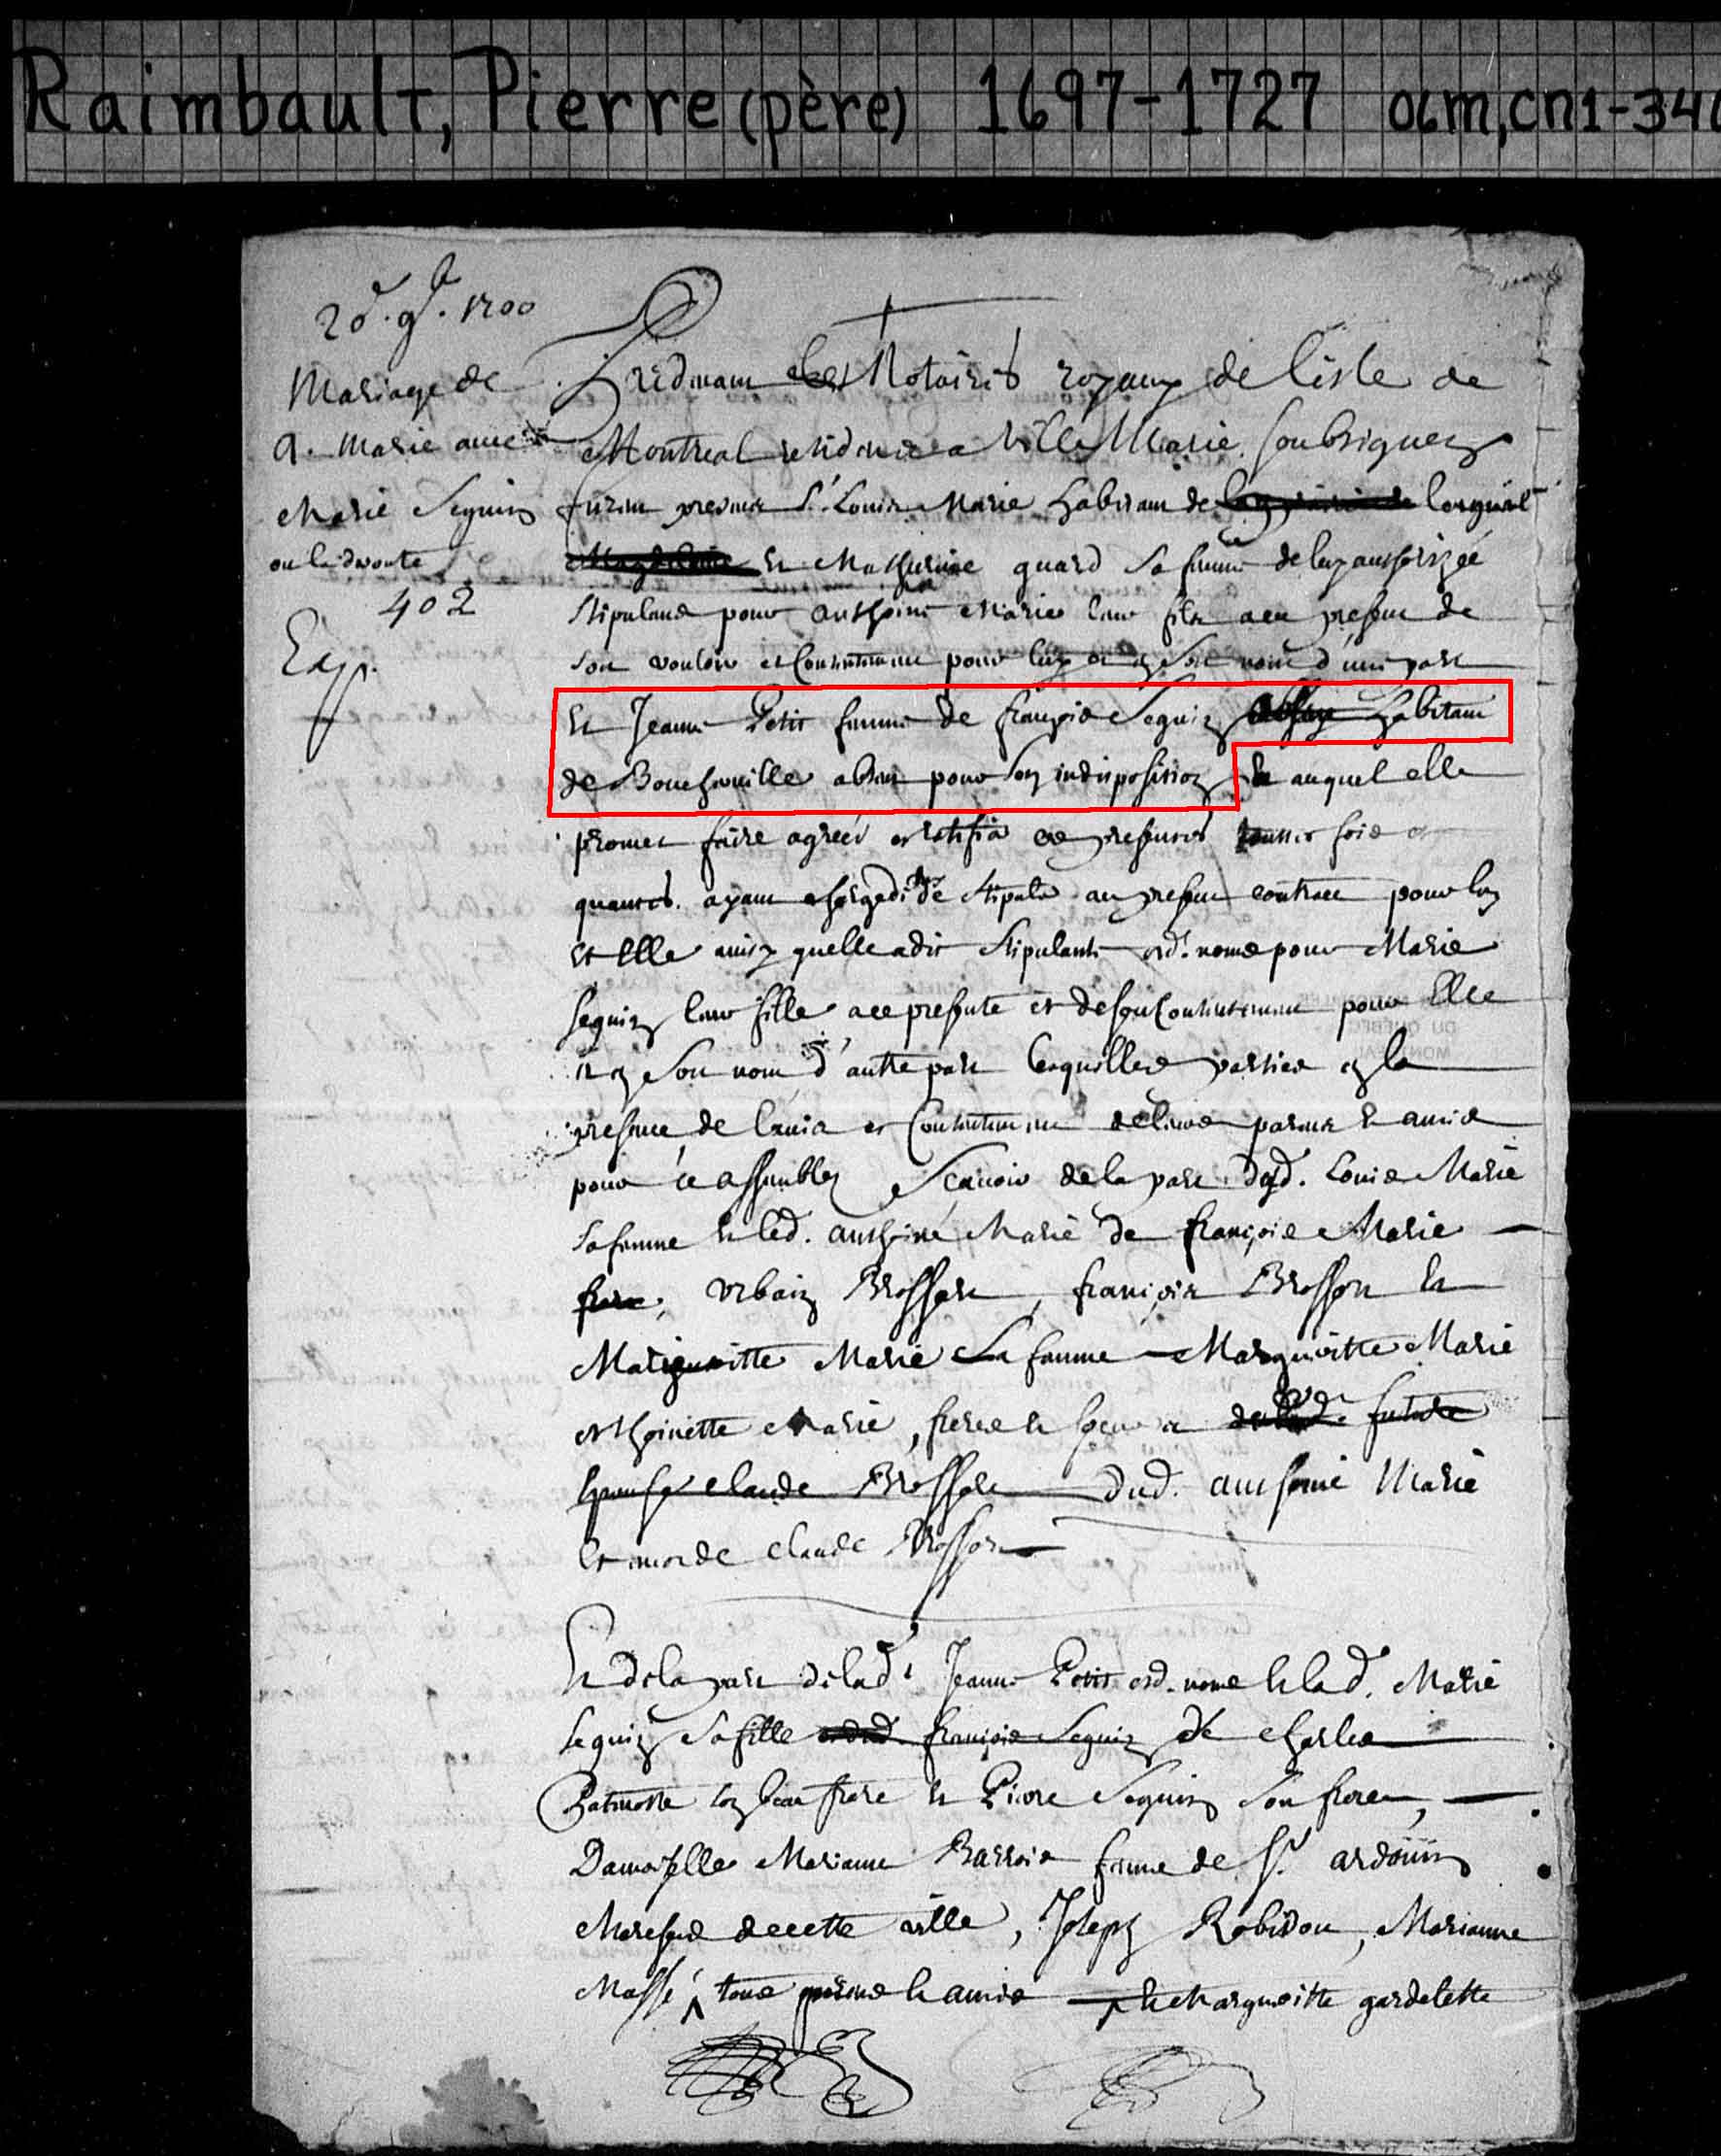 Raimbault, Pierre (père) 1697-1727 06m,cn1-340
1700
Mariage de
A. Marie avec
Marie Seguin
ou ledroute
402
Exp.
Pardevant les Nottaires royaux de l'isle de
Montreal residens a Ville Marie soubsignez
furent presens Sr. Louis Marie habitant de longueil
Et Mathurine guard sa femme de luy authorizée
stipulans pour anthoine Marie leur fils a ce present de
son vouloir et consentement pour luy et en son nom d'une part
Et Jeanne Petit femme de françois Seguin habitant
de Boucherville absent pour son indisposition auquel elle
promet faire agréer et ratifier ces presentes touttes fois et
quantes. ayant de stipuler au present contract pour luy
et Elle ainsy quelle a dit stipulante esd. noms pour Marie
Seguin leur fille a ce presente et de son consentement pour Elle
et en son nom d'autre part lesquelles parties en la
presence de l'avis et consentement de leurs parens et amis
pour ce assemblez Scavoir de la part dud. Louis Marie
sa femme et led. anthoine Marie de françois Marie
frere, urbain Brossart, françois Brossart et
Margueritte Marie sa femme Margueritte Marie
Marie, freres et soeurs future
Espouse claude Brossart Dud. anthoine Marie
Et de claude Brossart
Et de la part de lad. Jeanne Petit esd. noms et lad. Marie
Seguin sa fille françois Seguin de charles
Patenostre son beau frere et Pierre Seguin son frere,
Damoiselle Marianne Barrois femme de Sr. ardouin
Marchand de cette ville, Joseph Robidou, Marianne
Massé, tous parens et amis et Margueritte gardelette